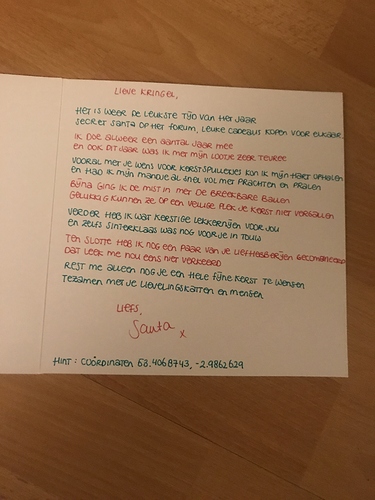 LIEVE KRINGEL,
HET IS WEER DE LEUKSTE TIJD VAN HET JAAR
SECRET SANTA OP HET FORUM, LEUKE CADEAUS KOPEN VOOR ELKAAR
IK DOE ALWEER EEN AANTAL JAAR MEE
EN OOK DIT JAAR WAS IK MET MIJN LOOTJE ZEER TEVREE
VOORAL MET JE WENS VOOR KERSTSPULLETJES KON IK MIJN HART OPHALEN
EN HAD IK MIJN MANDJE AL SNEL VOL MET PRACHTEN EN PRALEN
BIJNA GING IK DE MIST IN MET DE BREEKBARE BALLEN
GELUKKIG KUNNEN ZE OP EEN VEILIGE PLEK JE KERST NIET VERGALLEN
VERDER HEB IK WAT KERSTIGE LEKKERNIJEN VOOR JOU
EN ZELFS SINTERKLAAS WAS NOG VOOR JE IN TOUW
TEN SLOTTE HEB IK NOG EEN PAAR VAN JE LIEFHEBBERIJEN GECOMBINEERD
DAT LEEK ME NOU EENS NIET VERKEERD
REST ME ALLEEN NOG JE EEN HELE FIJNE KERST TE WENSEN
TEZAMEN MET JE LIEVELINGSKATTEN EN MENSEN
LIEFS,
Santa x
HINT: COÖRDINATEN 53.4068743, -2.9862629